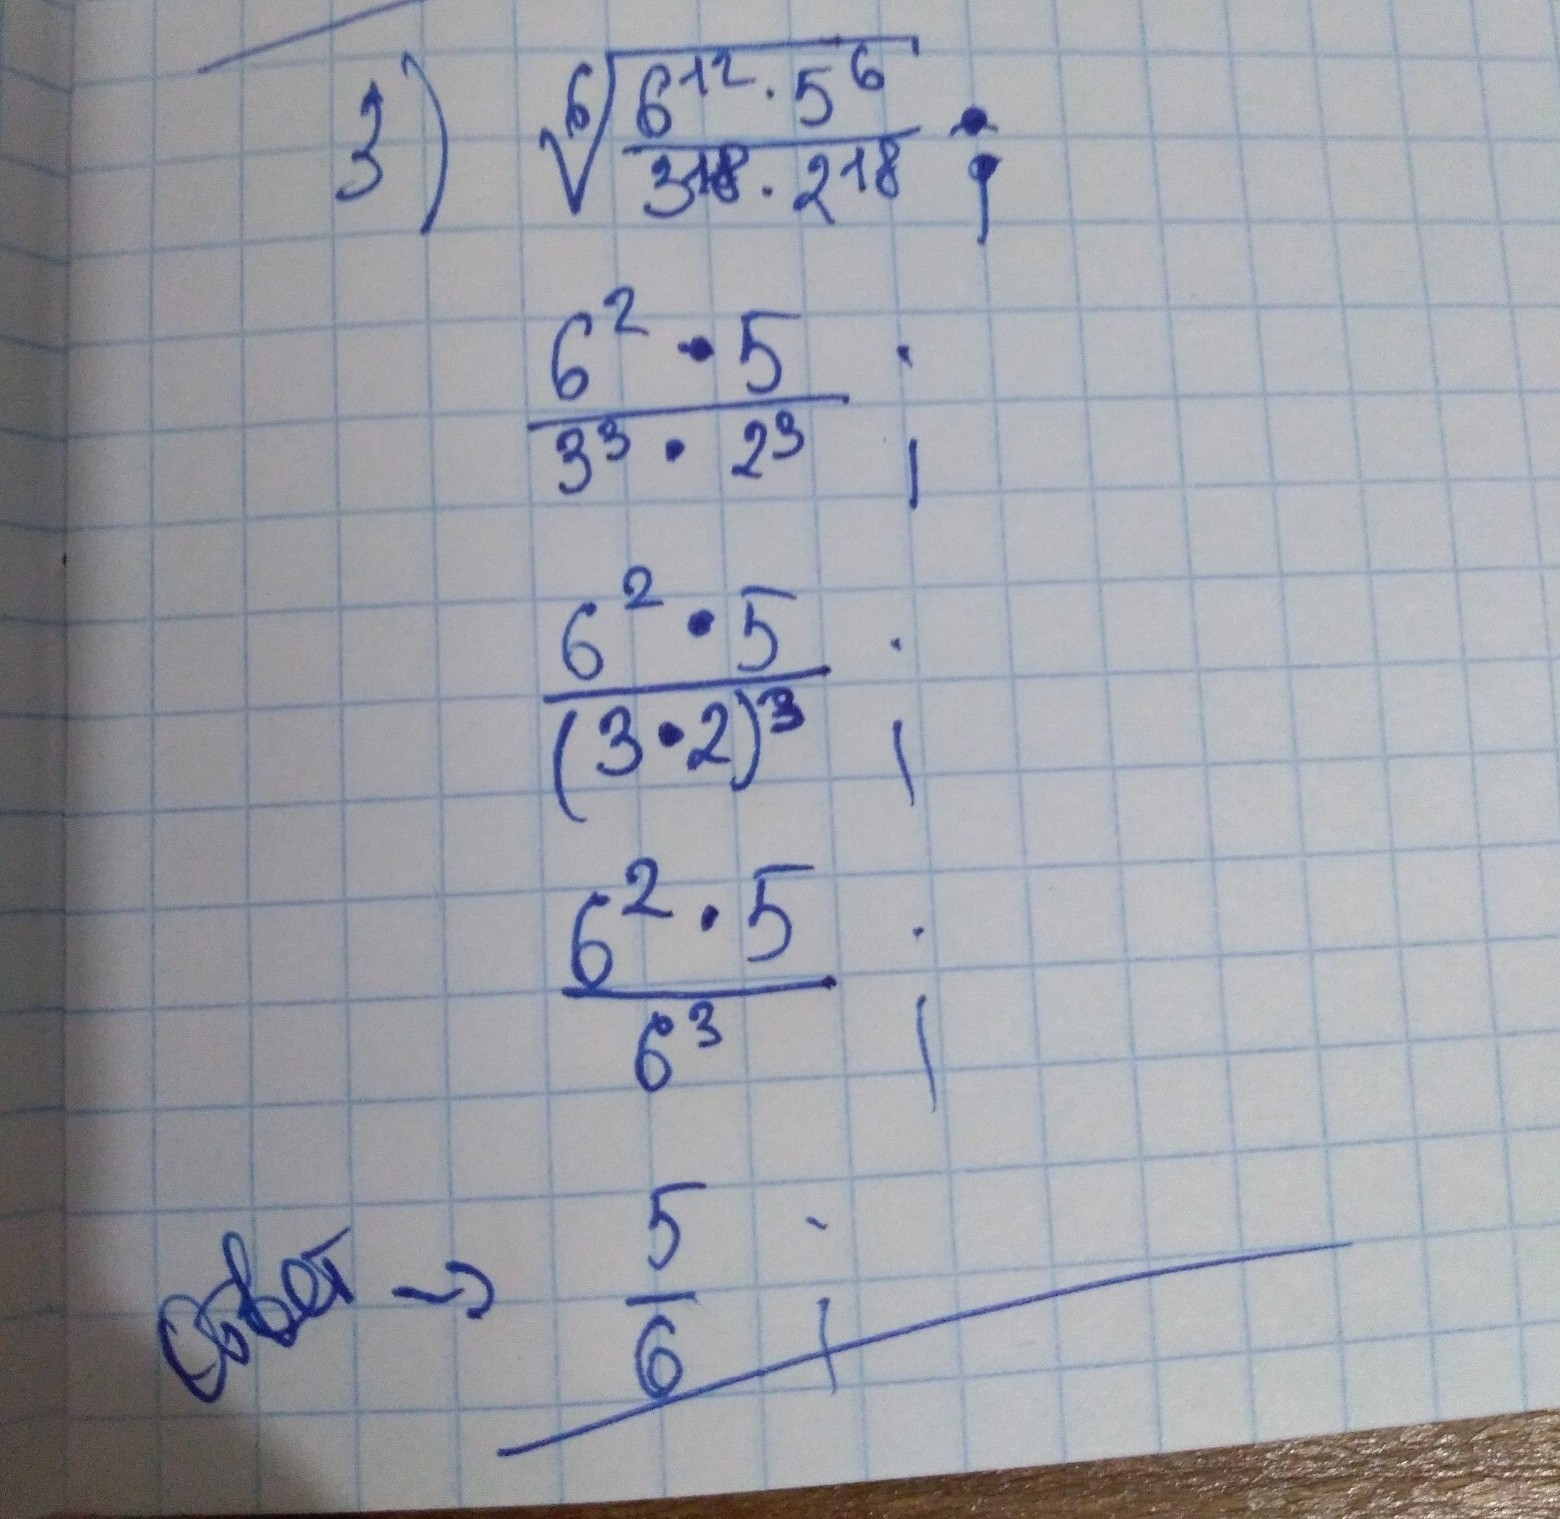 3) ⁶√(6¹² · 5⁶ / 3¹⁸ · 2¹⁸) ;
6² · 5 / 3³ · 2³ ;
6² · 5 / (3 · 2)³ ;
6² · 5 / 6³ ;
Ответ → 5/6 ;